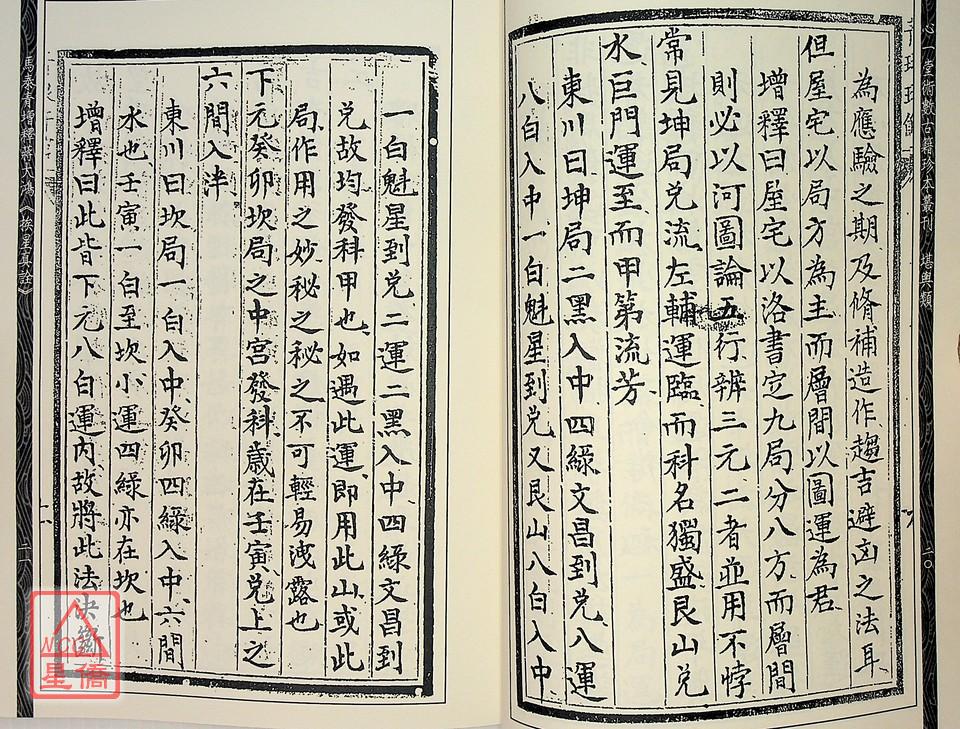 心一堂術數古籍珍本叢刊 堪輿類
二〇
為應驗之期及脩補造作趨吉避凶之法耳
但屋宅以局方為主而層間以圖運為君
增釋曰屋宅以洛書定九局分八方而層間
則必以河圖論五行辨三元二者並用不悖
常見坤局兌流左輔運臨而科名獨盛艮山兌
水巨門運至而甲第流芳
東川曰坤局二黑入中四綠文昌到兌八運
八白入中一白魁星到兌又艮山八白入中
一白魁星到兌二運二黑入中四綠文昌到
兌故均發科甲也如遇此運即用此山或此
局作用之妙秘之秘之不可輕易洩露也
下元癸卯坎局之中宮發科歲在壬寅兌上之
六間入泮
東川曰坎局一白入中癸卯四綠入中六間
水也壬寅一白至坎小運四綠亦在坎也
增釋曰此皆下元八白運內故將此法決斷
馬泰青增釋蔣大鴻《挨星真詮》
二一
WCL
星僑